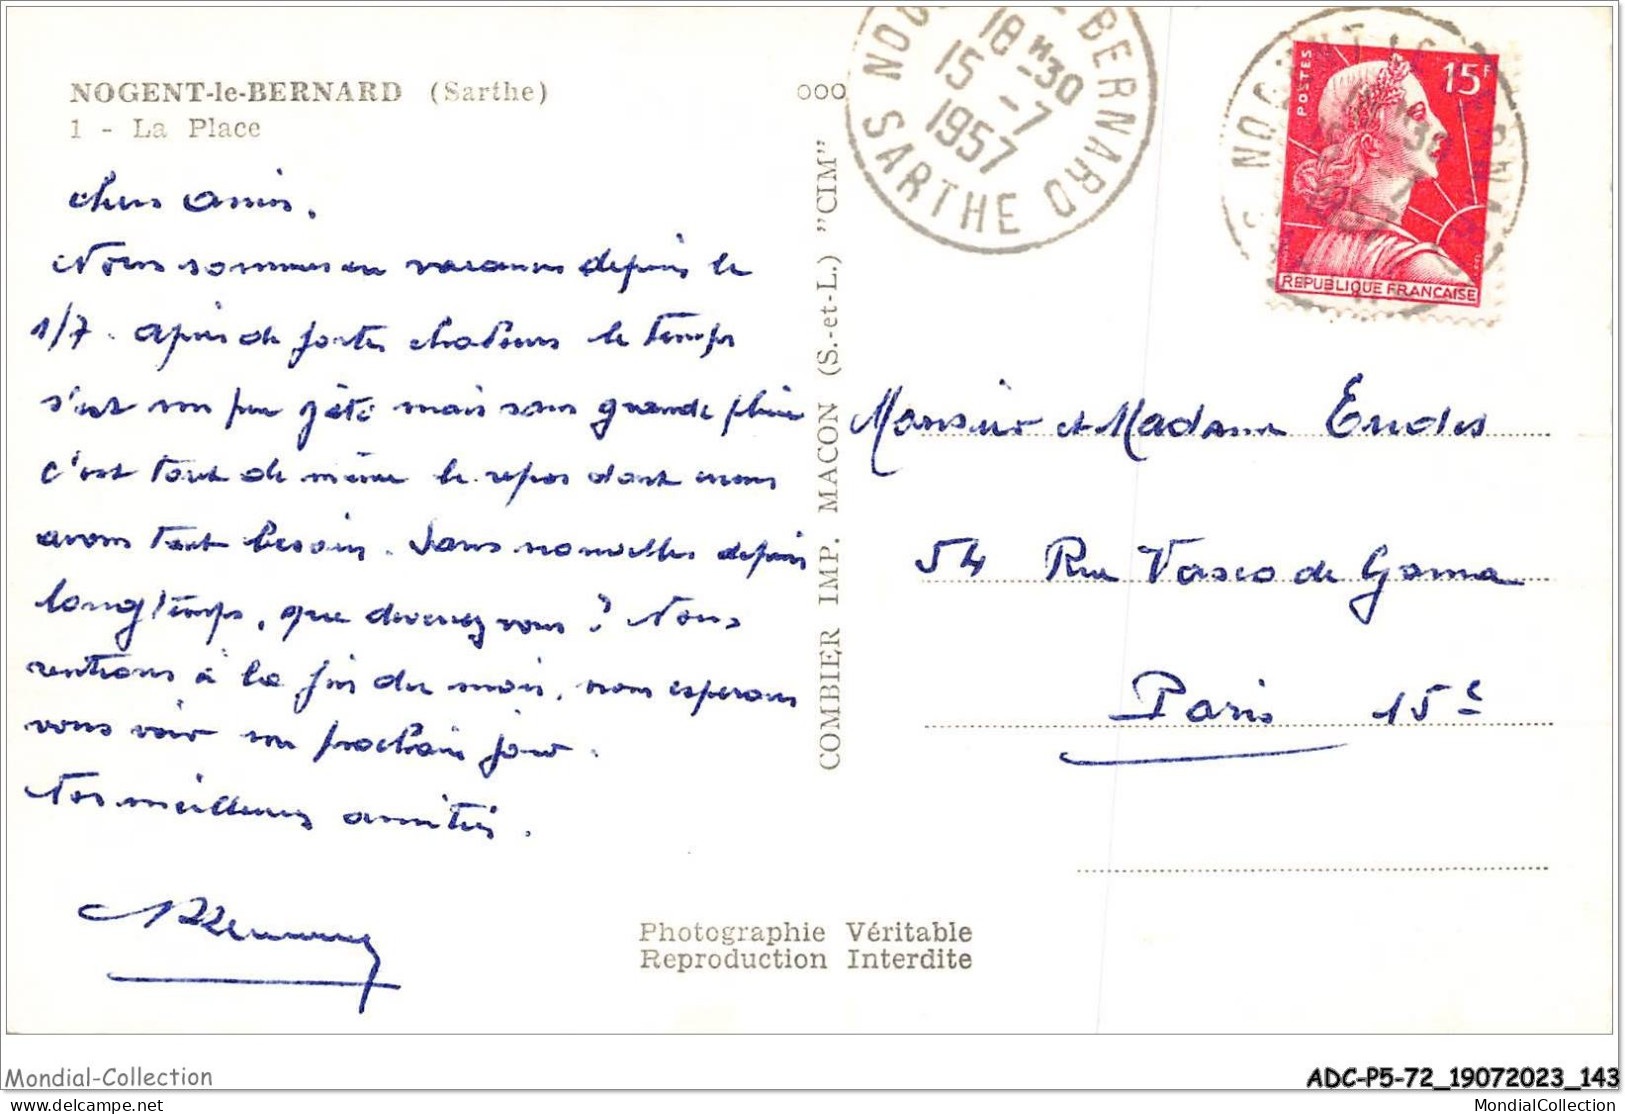 NOGENT-le-BERNARD (Sarthe)
1 - La Place
chers amis.
Nous sommes en vacances depuis le
1/7. Après de fortes chaleurs le temps
s'est un peu gâté mais sans grande pluie
c'est tout de même le repos dont nous
avons tant besoin. Sans nouvelles depuis
longtemps, que devenez vous ? Nous
rentrons à la fin du mois, nous esperons
vous voir un prochain jour.
Nos meilleures amitiés.
COMBIER IMP. MACON (S.-et-L.) "CIM"
18 H 30
15 - 7
1957
SARTHE
BERNARD
POSTES
15F
REPUBLIQUE FRANCAISE
Monsieur et Madame Eudes
54 Rue Vasco de Gama
Paris 15e
Photographie Véritable
Reproduction Interdite
Mondial-Collection
ADC-P5-72_19072023_143
www.delcampe.net
MondialCollection